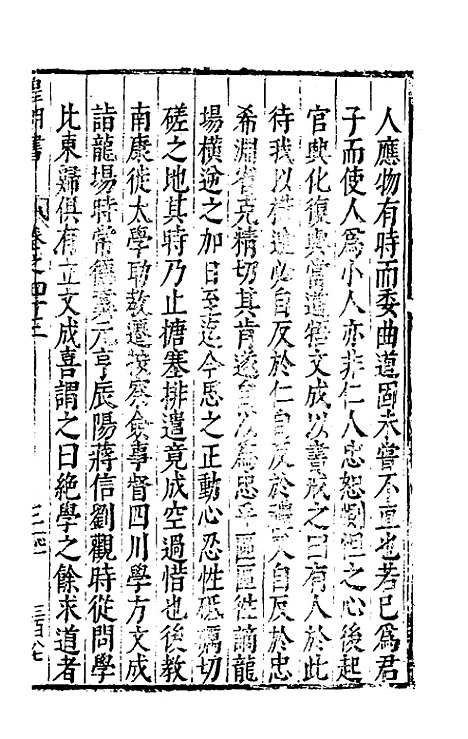 人應物有時而委曲道固未嘗不直也若已為君
子而使人為小人亦非仁人忠恕惻怛之心後起
官興化復與當道牾文成以書戒之曰有人於此
待我以橫逆必自反於仁自反於禮又自反於忠
希淵省克精切其肯遂自以為忠乎區區徃謫龍
場橫逆之加日至迄今思之正動心忍性砥礪切
磋之地其時乃止搪塞排遣竟成空過惜也後教
南康徙太學助教遷按察僉事督四川學方文成
詣龍場時常德冀元亨辰陽蔣信劉觀時從問學
比東歸俱有立文成喜謂之曰絕學之餘求道者
皇明書 卷之四十三
三百八七